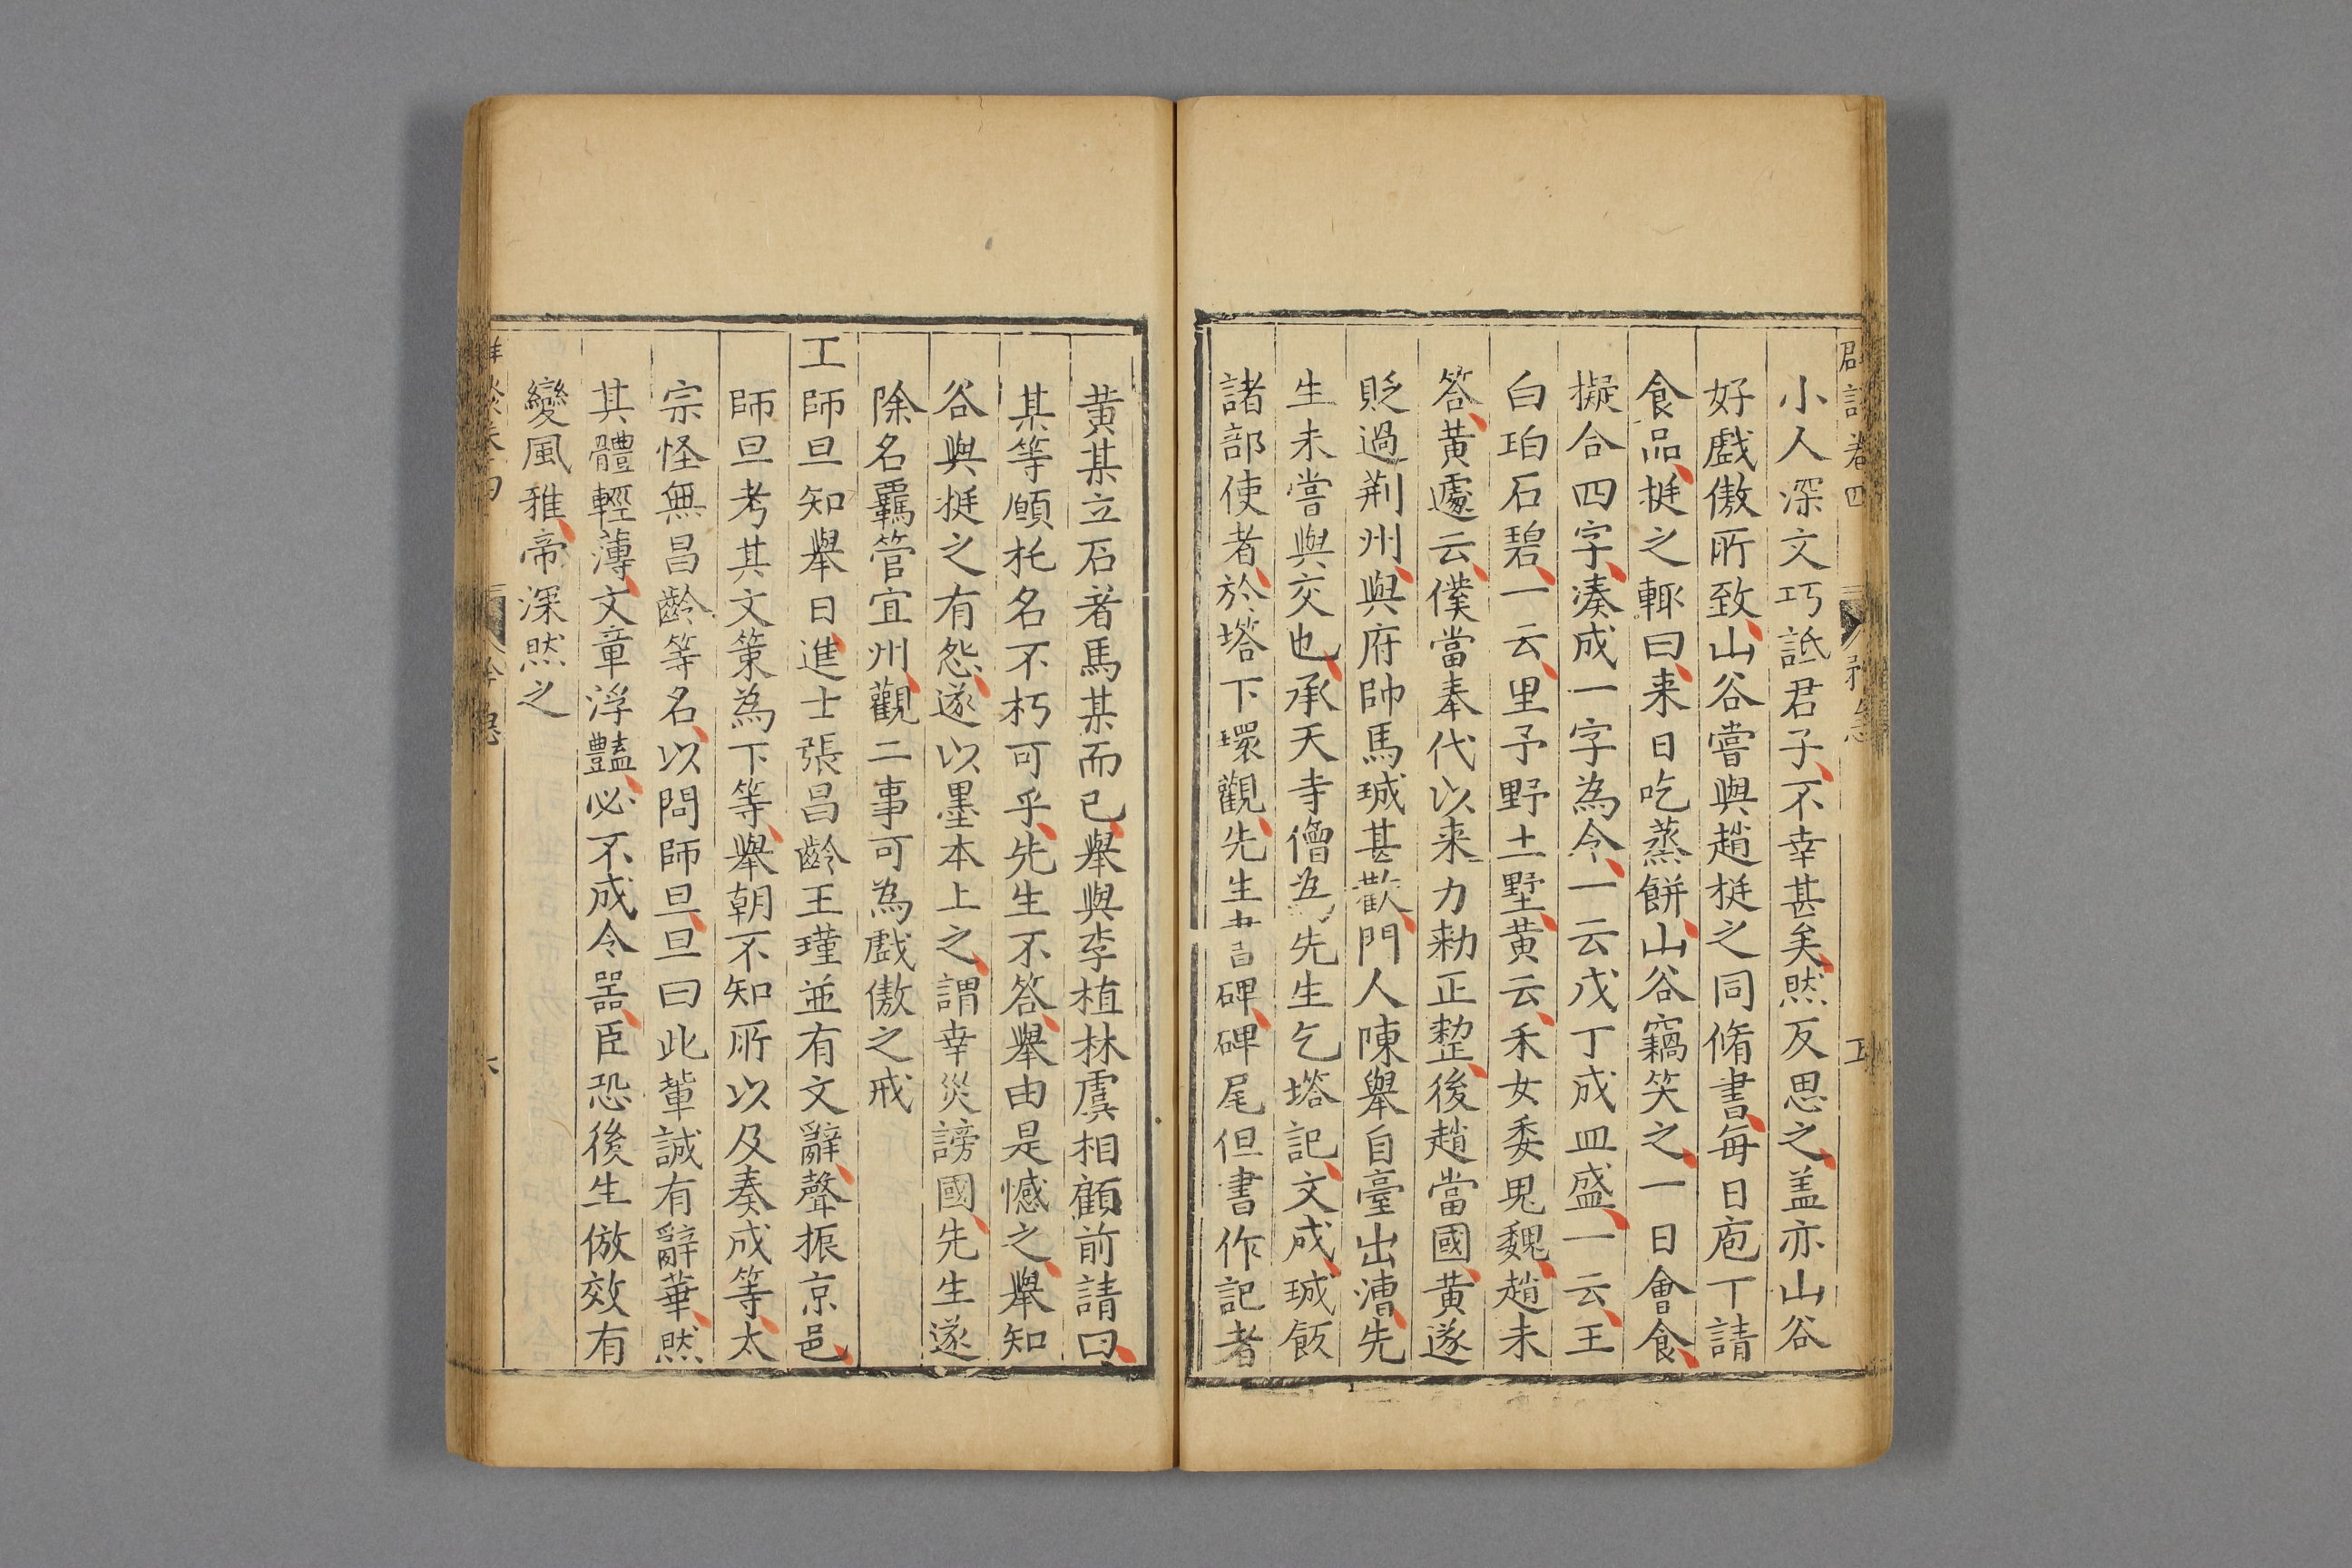 小人深文巧詆君子不幸甚矣然反思之盖亦山谷
好戲傲所致山谷嘗與趙挺之同脩書每日庖丁請
食品挺之輒曰来日吃蒸餅山谷竊笑之一日會食
擬合四字湊成一字為令一云戊丁成皿盛一云王
白珀石碧一云里予野土墅黄云禾女委鬼魏趙未
答黄遽云僕當奉代以来力勑正整後趙當國黄遂
貶過荆州與府帥馬瑊甚歡門人陳舉自臺出漕先
生未嘗與交也承天寺僧為先生乞塔記文成瑊飯
諸部使者於塔下環觀先生書碑碑尾但書作記者
黄某立石者馬某而已舉與李植林虞相顧前請曰
某等願托名不朽可乎先生不答舉由是憾之舉知
谷與挺之有怨遂以墨本上之謂幸災謗國先生遂
除名羈管宜州觀二事可為戲傲之戒
王師旦知舉日進士張昌齡王瑾並有文辭聲振京邑
師旦考其文策為下等舉朝不知所以及奏成等太
宗怪無昌齡等名以問師旦旦曰此輩誠有辭華然
其體輕薄文章浮豔必不成令噐臣恐後生倣效有
變風雅帝深然之